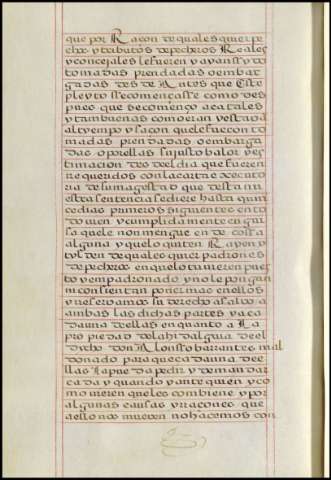 que por Racon de quales quier pe
chos y tributos de pecheros Reales
y concejales le fueren y ayan sydo
tomadas prendadas o embar
gadas desde Antes que Este
pleyto se començasse como des
pues que se començo a tales
y tan buenas como eran y estavā
al tyempo y saçon que le fueron to
madas prendadas o embarga
das o por ellas su justo balor y es
timacion desdel dia que fueren
requeridos con la carta executo
ria de su magestad que desta nu
estra sentencia se diere hasta quin
ce dias primeros siguientes en to
do bien y cumplidamente en gui
sa que le non mengue ende cossa
alguna y que lo quiten Rayen y
tylden de quales quier padrones
de pecheros en que lo tuvieren pues
to y empadronado y no le pongan
ni consientan poner mas en ellos
y reservamos su derecho a salvo a
ambas las dichas partes y a ca
da una dellas en quanto A La
propiedad de la hidalguia de el
dicho don Alonsso barrantes mal
donado para que cada una de e
llas La pueda pedir y demandar
cada y quando y ante quien y co
mo vieren que les combiene y por
algunas causas y raçones que
a ello nos mueven no hacemos con